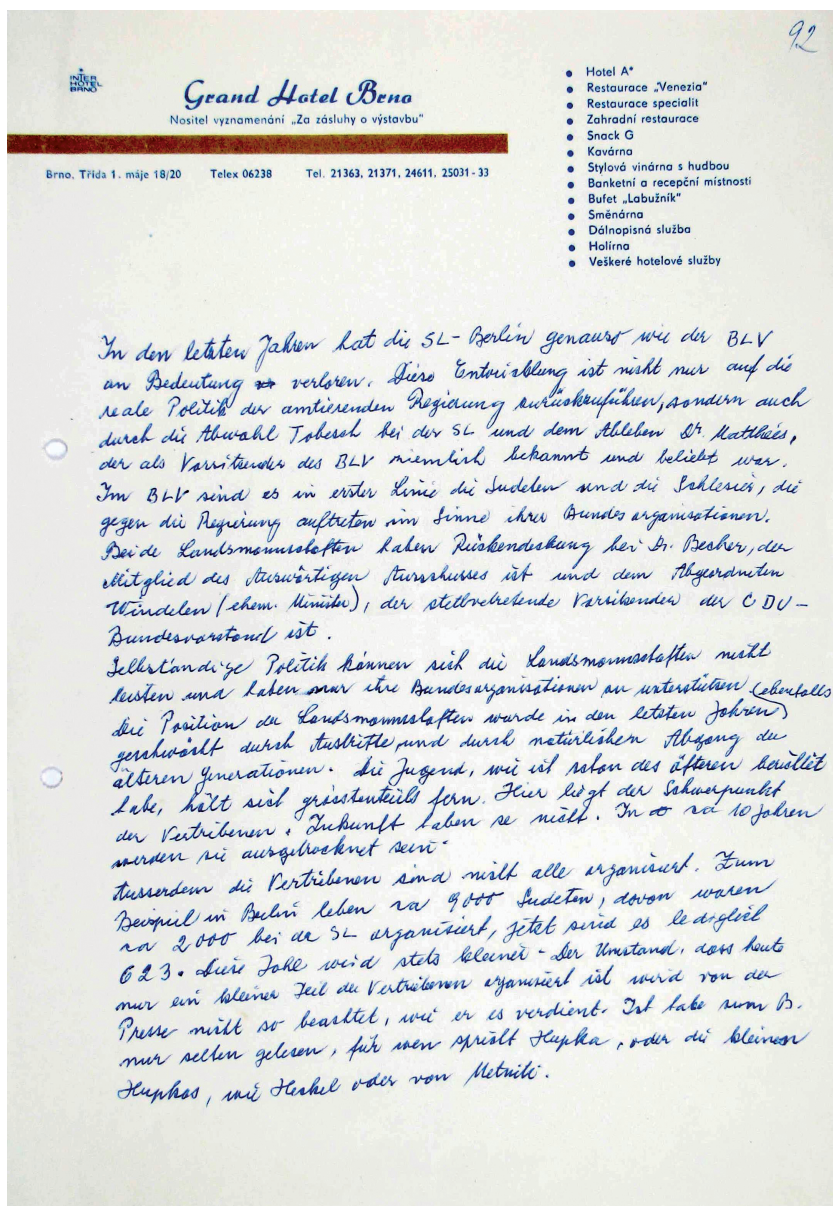 92
INTER
HOTEL
BRNO
Grand Hotel Brno
Nositel vyznamenání „Za zásluhy o výstavbu“
Brno, Třída 1. máje 18/20 Telex 06238 Tel. 21363, 21371, 24611, 25031-33
Hotel A*
Restaurace „Venezia“
Restaurace specialit
Zahradní restaurace
Snack G
Kavárna
Stylová vinárna s hudbou
Banketní a recepční místnosti
Bufet „Labužník“
Směnárna
Dálnopisná služba
Holírna
Veškeré hotelové služby
In den letzten Jahren hat die SL-Berlin genauso wie der BLV
an Bedeutung verloren. Diese Entwicklung ist nicht nur auf die
reale Politik der amtierenden Regierung zurückzuführen, sondern auch
durch die Abwahl Tobesch bei der SL und dem Ableben Dr. Matthees,
der als Vorsitzender des BLV ziemlich bekannt und beliebt war.
Im BLV sind es in erster Linie die Sudeten und die Schlesier, die
gegen die Regierung auftreten im Sinne ihrer Bundesorganisationen.
Beide Landsmannschaften haben Rückendeckung bei Dr. Becher, der
Mitglied des Auswärtigen Ausschusses ist und dem Abgeordneten
Windelen (ehem. Minister), der stellvetretende Vorsitzender der CDU-
Bundesvorstand ist.
Selbständige Politik können sich die Landsmannschaften nicht
leisten und haben nur ihre Bundesorganisationen zu unterstützen
Die Position der Landsmannschaften wurde in den letzten Jahren (ebenfalls
geschwächt durch Austritte und durch natürlichen Abgang der
älteren Generationen. Die Jugend, wie ich schon des öfteren berichtet
habe, hält sich grösstenteils fern. Hier liegt der Schwerpunkt
der Vertribenen. Zukunft haben se nicht. In za 10 Jahren
werden sie ausgetrocknet sein.
Ausserdem die Vertribenen sind nicht alle organisiert. Zum
Beispiel in Berlin leben za 9000 Sudeten, davon waren
za 2000 bei der SL organisiert, jetzt sind es lediglich
623. Diese Zahl wird stets kleiner. Der Umstand, dass heute
nur ein kleiner Teil der Vertribenen organisiert ist wird von der
Presse nicht so beachtet, wie er es verdient. Ich habe zum B.
nur selten gelesen, für wen spricht Hupka, oder die kleinen
Hupkas, wie Heckel oder von